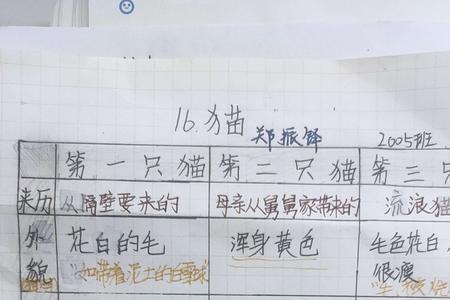 16.猫
郑振铎
2005班
第一只猫 第二只猫 第三只
来历 从隔壁要来的 母亲从舅舅家带来的 流浪猫
外貌 花白的毛 浑身黄色 毛色花白，
很瘦
"如带着泥土的白雪球